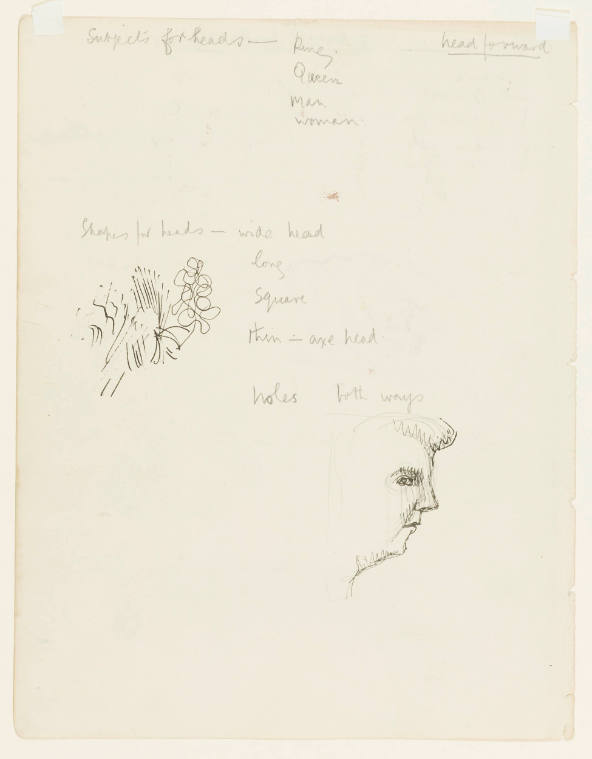 Subjects for heads — King.
head forward
Queen
Man
woman.
Shapes for heads — wide head
long
Square
thin — axe head.
holes both ways